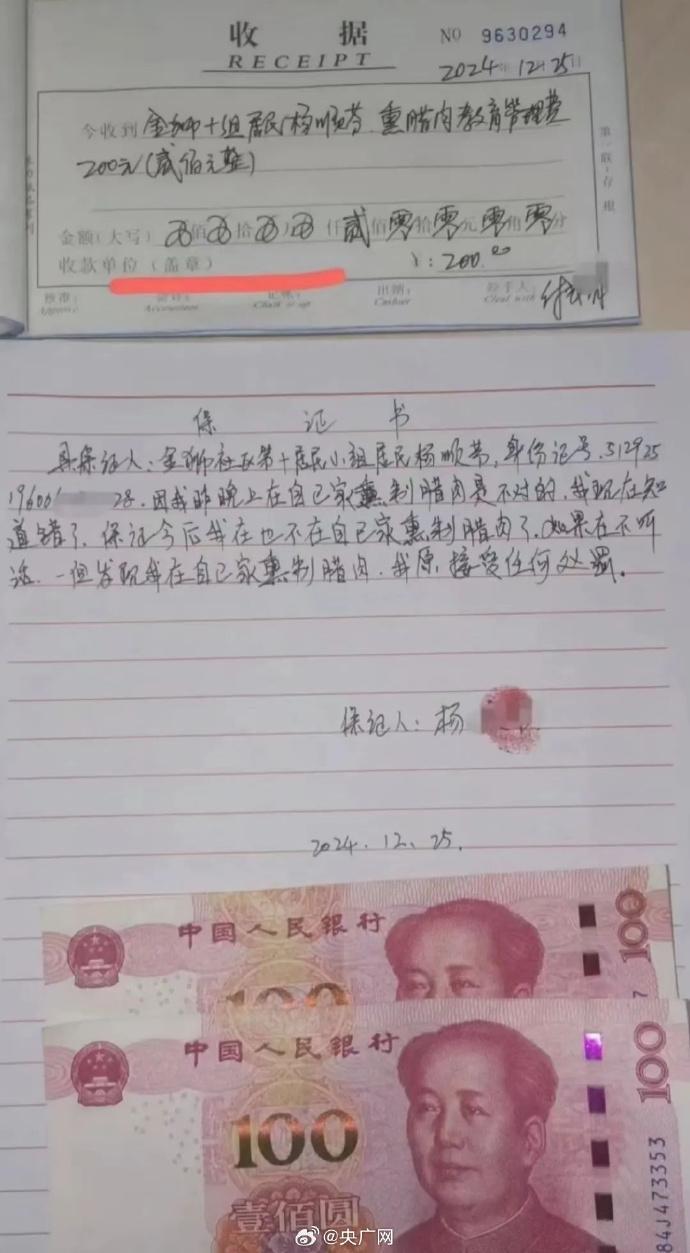 收 据
NO 9630294
RECEIPT
2024年12月25日
今收到 金狮十组居民杨顺芬.熏腊肉教育管理费
200元(贰佰元整)
金额(大写) 佰 拾 万 仟 贰佰零拾零元零角零分
收款单位(盖章) ¥:200.00
核准: 会计: 记帐: 出纳: 经手人:
Approve Accountant Chalk it up Cashier Deal with
第一联:存根
保 证 书
具保证人:金狮社区第十居民小组居民杨顺芬,身份证号.512925
19600 28.因我昨晚上在自己家熏制腊肉是不对的.我现在知
道错了.保证今后我在也不在自己家熏制腊肉了.如果在不听
话.一但发现我在自己家熏制腊肉.我原接受任何处罚。
保证人:杨
2024.12.25.
中国人民银行
100
100
中国人民银行
100
100
壹佰圆
84J473353
@央广网